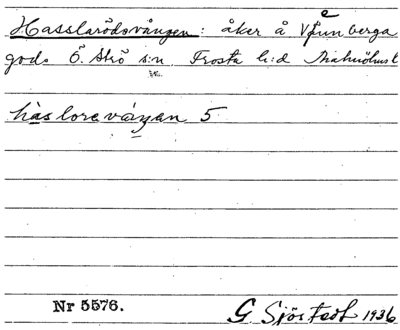 Hasslarödsvången: åker å Vrenberga
gods Ö. Strö s:n Frosta h:d Malmöhus l
hàslorevåŋan 5
Nr 5576.
G. Sjöstedt 1936